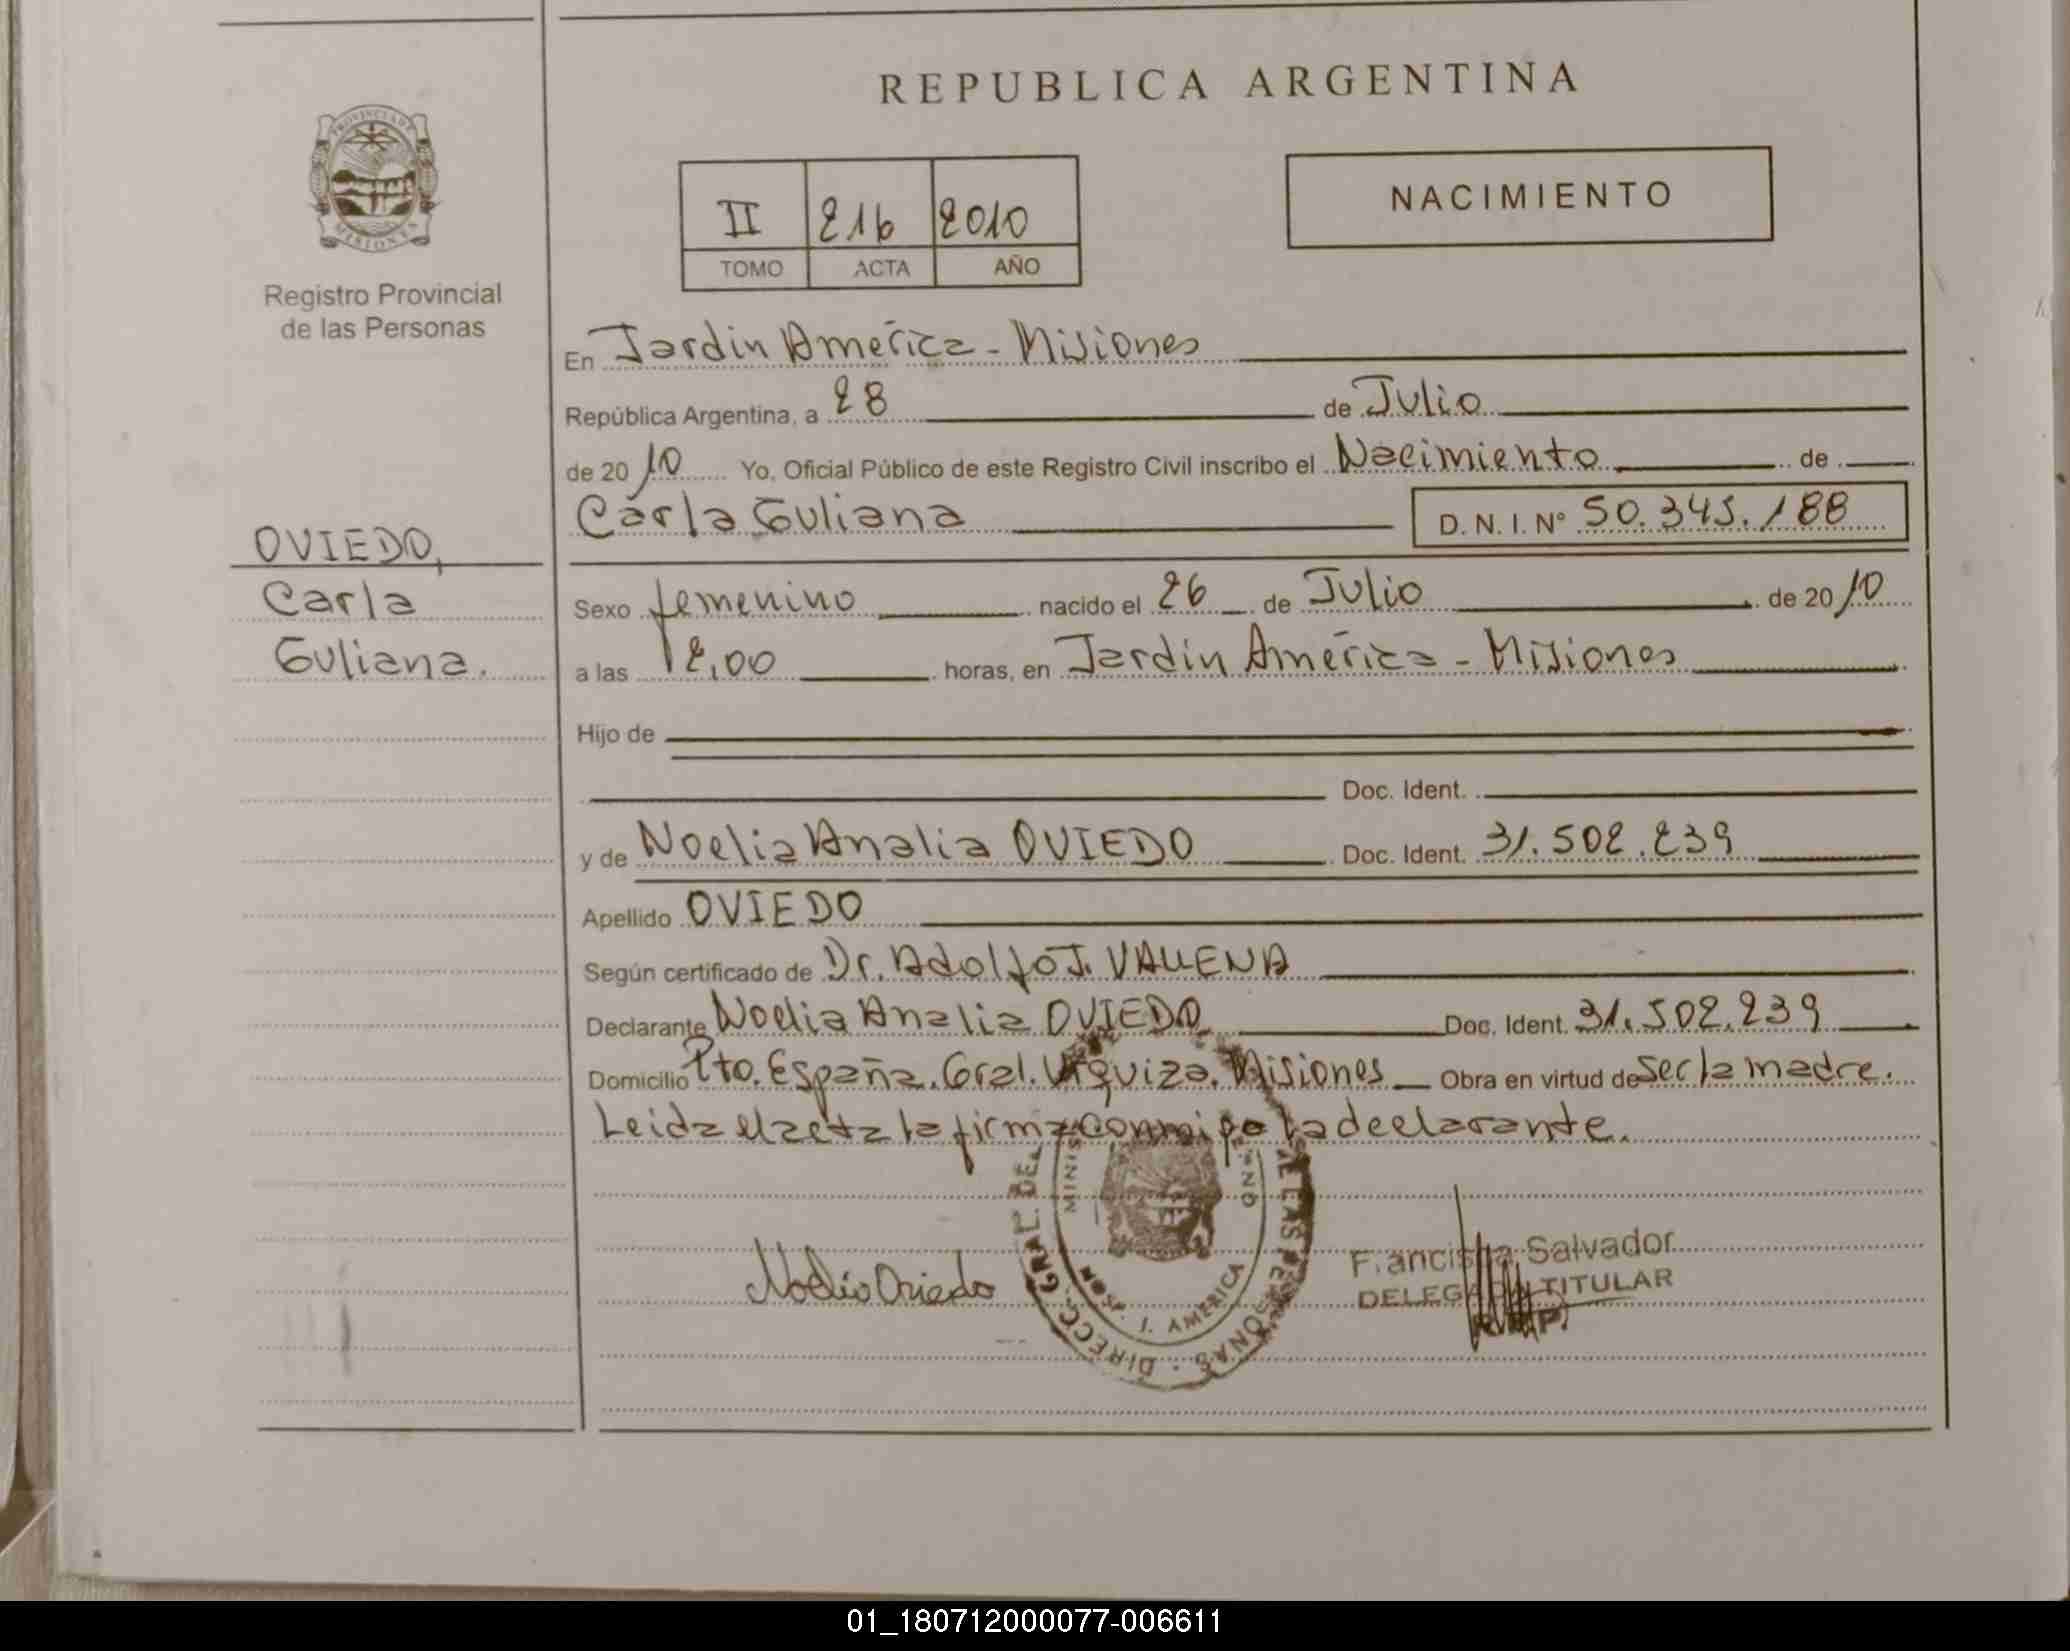 REPUBLICA ARGENTINA
PROVINCIA DE MISIONES
Registro Provincial
de las Personas
II 216 2010
TOMO ACTA AÑO
NACIMIENTO
En Jardin América - Misiones
República Argentina, a 28 de Julio
de 20 10 Yo, Oficial Público de este Registro Civil inscribo el Nacimiento de
Carla Guliana D. N. I. Nº 50.345.188
OVIEDO,
Carla
Guliana.
Sexo femenino nacido el 26 de Julio de 20 10
a las 12,00 horas, en Jardin América - Misiones
Hijo de
Doc. Ident.
y de Noelia Analia OVIEDO Doc. Ident. 31.502.239
Apellido OVIEDO
Según certificado de Dr. Adolfo J. VALLENA
Declarante Noelia Analia OVIEDO Doc. Ident. 31.502.239
Domicilio Pto. España. Gral. Urquiza. Misiones Obra en virtud de ser la madre.
Leida el acta la firma conmigo la declarante.
Noelia Oviedo
DIRECC. GRAL. DE LAS PERSONAS
J. AMERICA
Francisca Salvador
DELEGADA TITULAR
R.P.P.
01_180712000077-006611